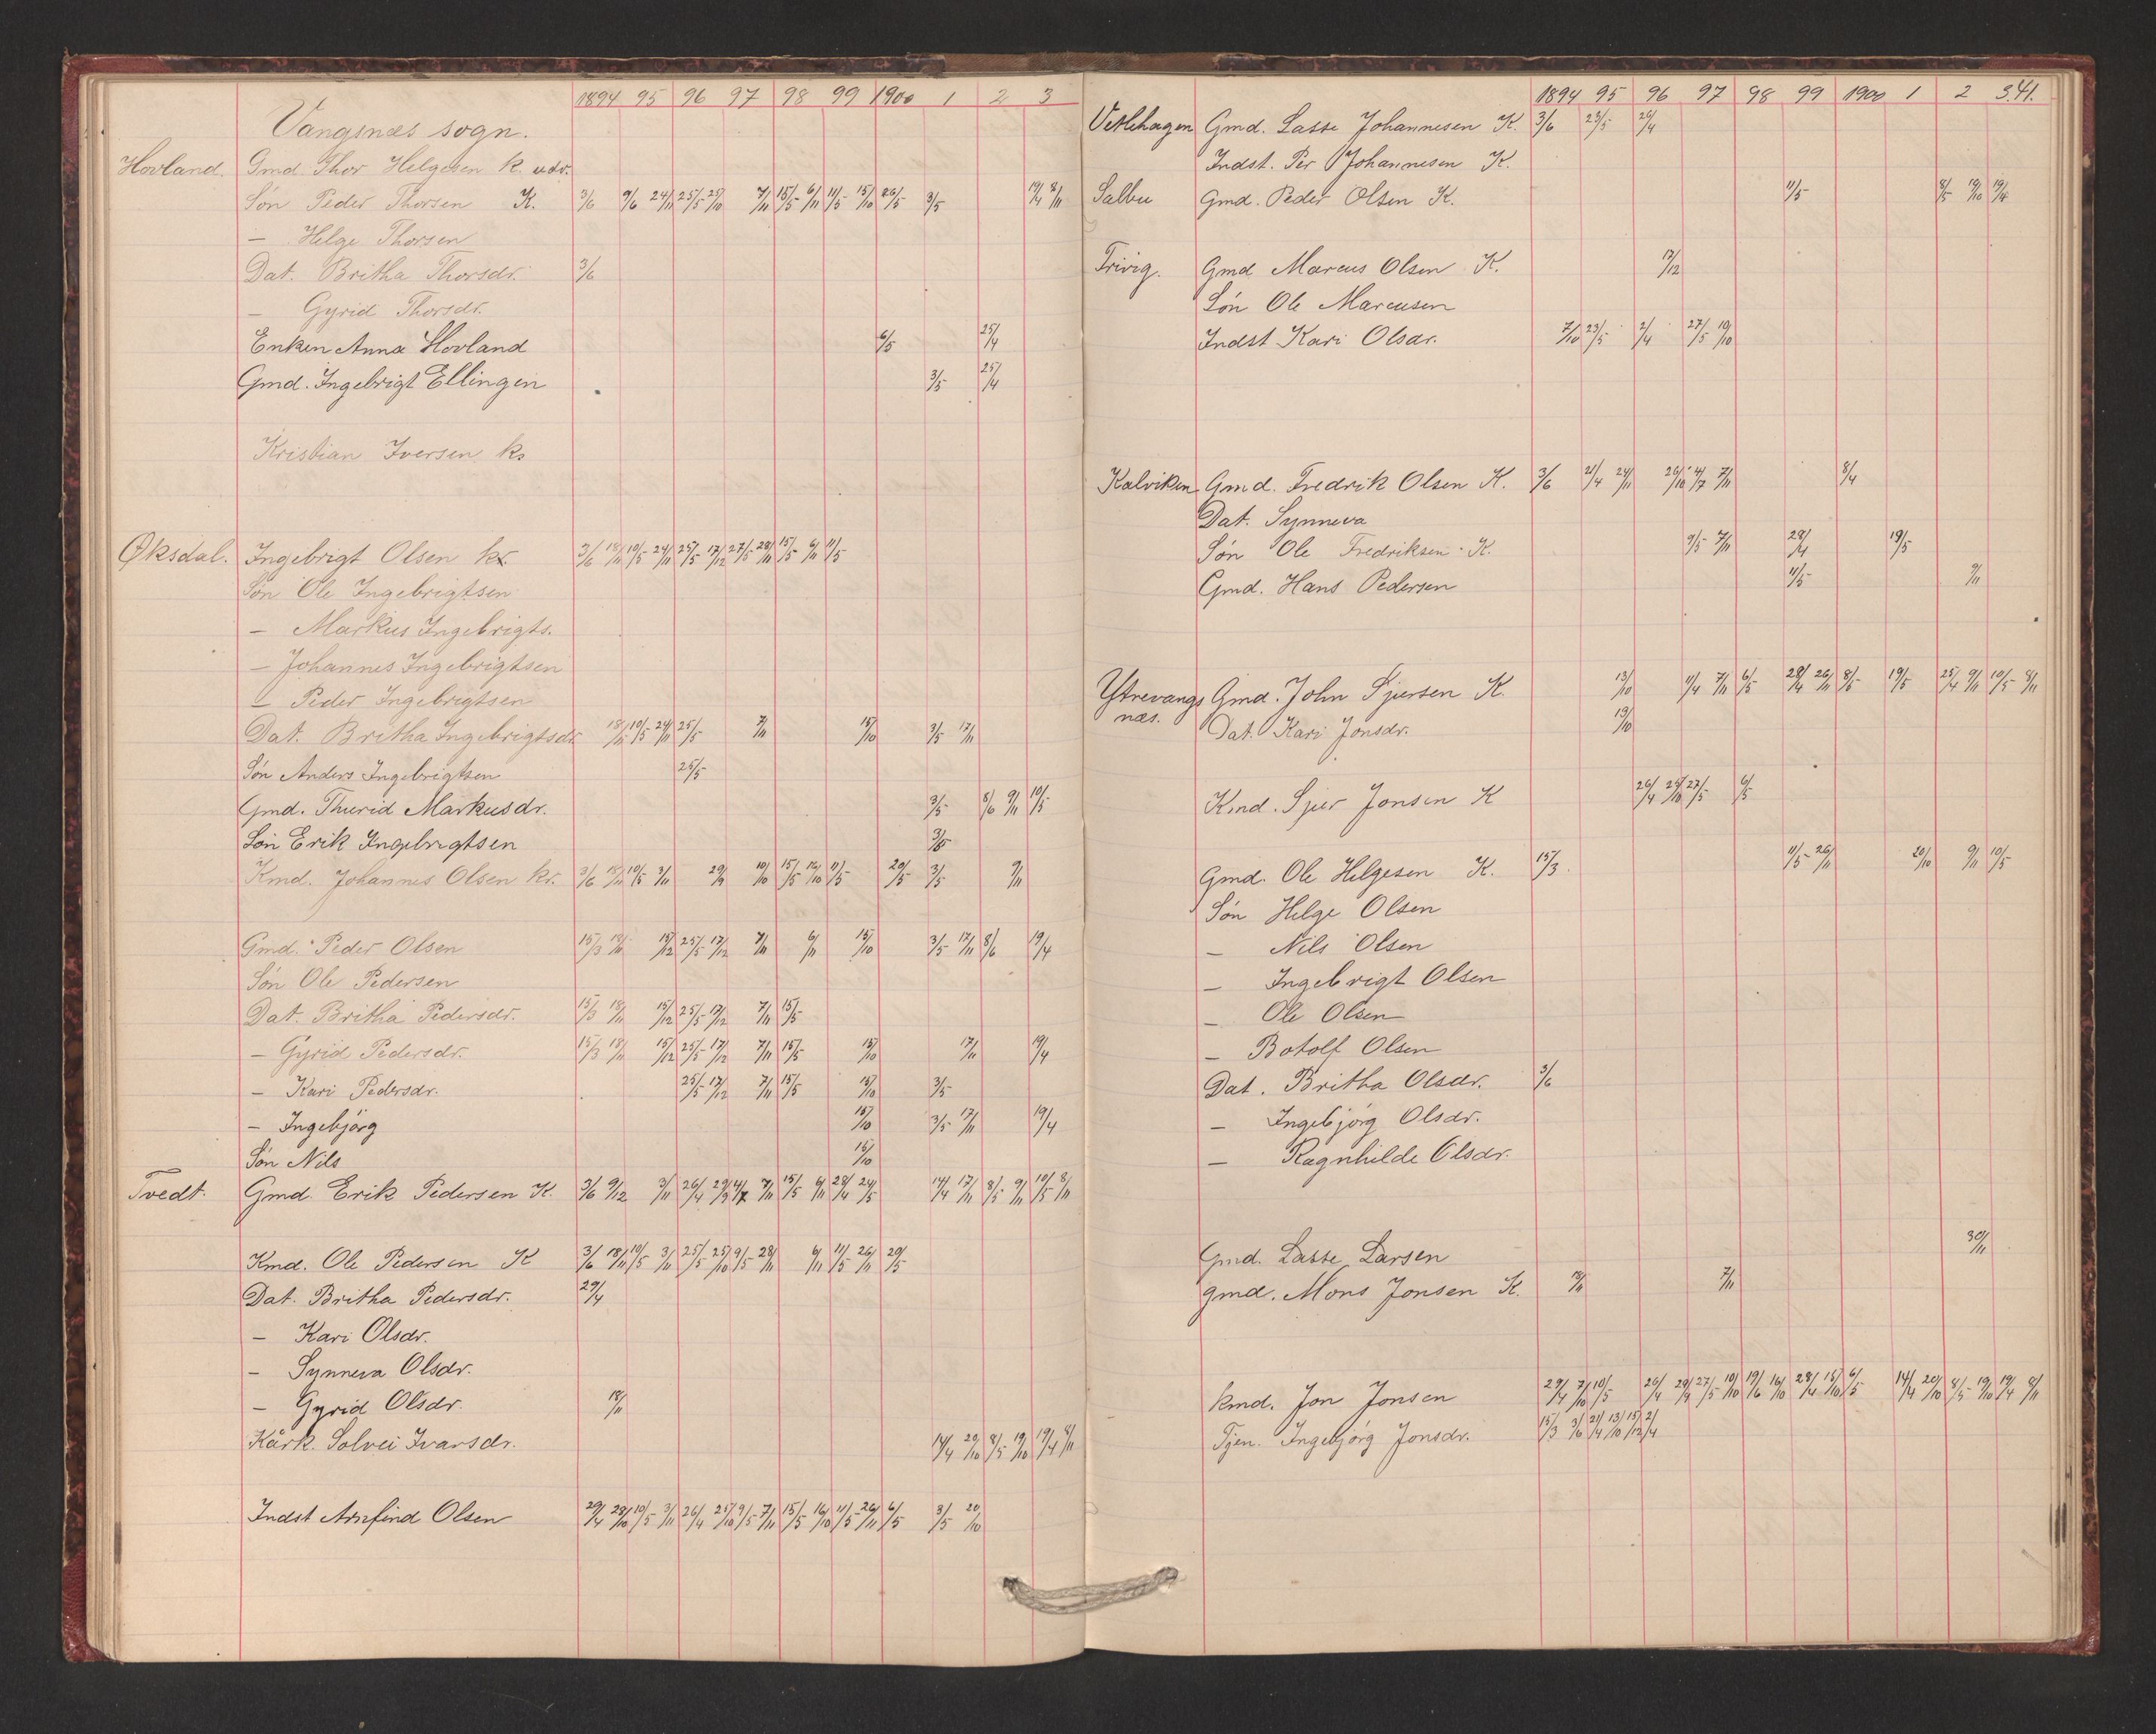 1894 95 96 97 98 99 1900 1 2 3
Vangsnæs sogn.
Hovland. Gmd Thor Helgesen k. udv.
Søn Peder Thorsen K. 3/6 9/6 24/11 25/5 25/10 7/11 15/5 6/11 11/5 15/10 26/5 3/5 19/4 8/11
— Helge Thorsen
Dat. Britha Thorsdr. 3/6
— Gyrid Thorsdr.
Enken Anna Hovland 6/5 25/4
Gmd. Ingebrigt Ellingen 3/5 25/4
Kristian Iversen k.
Øksdal. Ingebrigt Olsen k. 3/6 18/11 10/5 24/11 25/5 17/12 27/5 28/11 15/5 6/11 11/5
Søn Ole Ingebrigtsen
— Markus Ingebrigts.
— Johannes Ingebrigtsen
— Peder Ingebrigtsen
Dat. Britha Ingebrigtsdr. 18/11 10/5 24/11 25/5 7/11 15/10 3/5 17/11
Søn Anders Ingebrigtsen 25/5
Gmd. Thurid Markusdr. 3/5 8/6 9/11 10/5
Søn Erik Ingebrigtsen 3/5
Kmd. Johannes Olsen kr. 3/6 18/11 10/5 3/11 29/9 10/10 15/5 16/10 11/5 20/5 3/5 9/11
Gmd. Peder Olsen 15/3 18/11 15/12 25/5 17/12 7/11 6/11 15/10 3/5 17/11 8/6 19/4
Søn Ole Pedersen
Dat. Britha Pedersdr. 15/3 18/11 15/12 25/5 17/12 7/11 15/5
— Gyrid Pedersdr. 15/3 18/11 15/12 25/5 17/12 7/11 15/5 15/10 17/11 19/4
— Kari Pedersdr. 25/5 17/12 7/11 15/5 15/10 3/5
— Ingebjörg 15/10 3/5 17/11 19/4
Søn Nils 15/10
Tvedt. Gmd. Erik Pedersen K. 3/6 9/12 3/11 26/4 29/9 4/7 7/11 15/5 6/11 28/4 24/5 14/4 17/11 8/5 9/11 10/5 8/11
Kmd. Ole Pedersen K 3/6 18/11 10/5 3/11 25/5 25/10 9/5 28/11 6/11 11/5 26/11 20/5
Dat. Britha Pedersdr. 29/4
— Kari Olsdr.
— Synneva Olsdr.
— Gyrid Olsdr. 18/11
Kårk. Solvei Ivarsdr. 14/4 20/10 8/5 19/10 19/4 8/11
Indst Arnfind Olsen 29/4 28/10 10/5 3/11 26/4 25/10 9/5 7/11 15/5 16/10 11/5 26/11 6/5 3/5 20/10
1894 95 96 97 98 99 1900 1 2 3.
Vetlehagen Gmd. Lasse Johannesen K. 3/6 23/5 26/4
Indst. Per Johannesen K.
Salbu Gmd. Peder Olsen K. 11/5 8/5 19/10 19/4
Trivig. Gmd Marcus Olsen K. 17/12
Søn Ole Marcusen
Indst Kari Olsdr. 7/10 23/5 2/4 27/5 10/10
Kalviken Gmd. Fredrik Olsen K. 3/6 21/4 24/11 26/10 4/7 7/11 8/4
Dat. Synneva
Søn Ole Fredriksen K. 9/5 7/11 28/4 19/5
Gmd. Hans Pedersen 11/5 9/11
Ytrevangs Gmd. John Sjursen K. 13/10 11/4 7/11 6/5 28/4 26/11 8/5 19/5 25/4 9/11 10/5 8/11
næs. Dat. Kari Jonsdr. 13/10
Kmd. Sjur Jonsen K 26/4 25/10 27/5 6/5
Gmd. Ole Helgesen K. 15/3 11/5 26/11 20/10 9/11 10/5
Søn Helge Olsen
— Nils Olsen
— Ingebrigt Olsen
— Ole Olsen
— Botolf Olsen
Dat. Britha Olsdr. 3/6
— Ingebjörg Olsdr.
— Ragnhilde Olsdr.
Gmd. Lasse Larsen 30/11
gmd. Mons Jonsen K. 18/11 7/11
kmd. Jon Jonsen 29/4 7/10 10/5 26/4 29/9 27/5 10/10 19/6 16/10 28/4 15/10 6/5 14/4 20/10 8/5 19/10 19/4 8/11
Tjen. Ingebjörg Jonsdr. 15/3 3/6 21/4 13/10 15/12 2/4